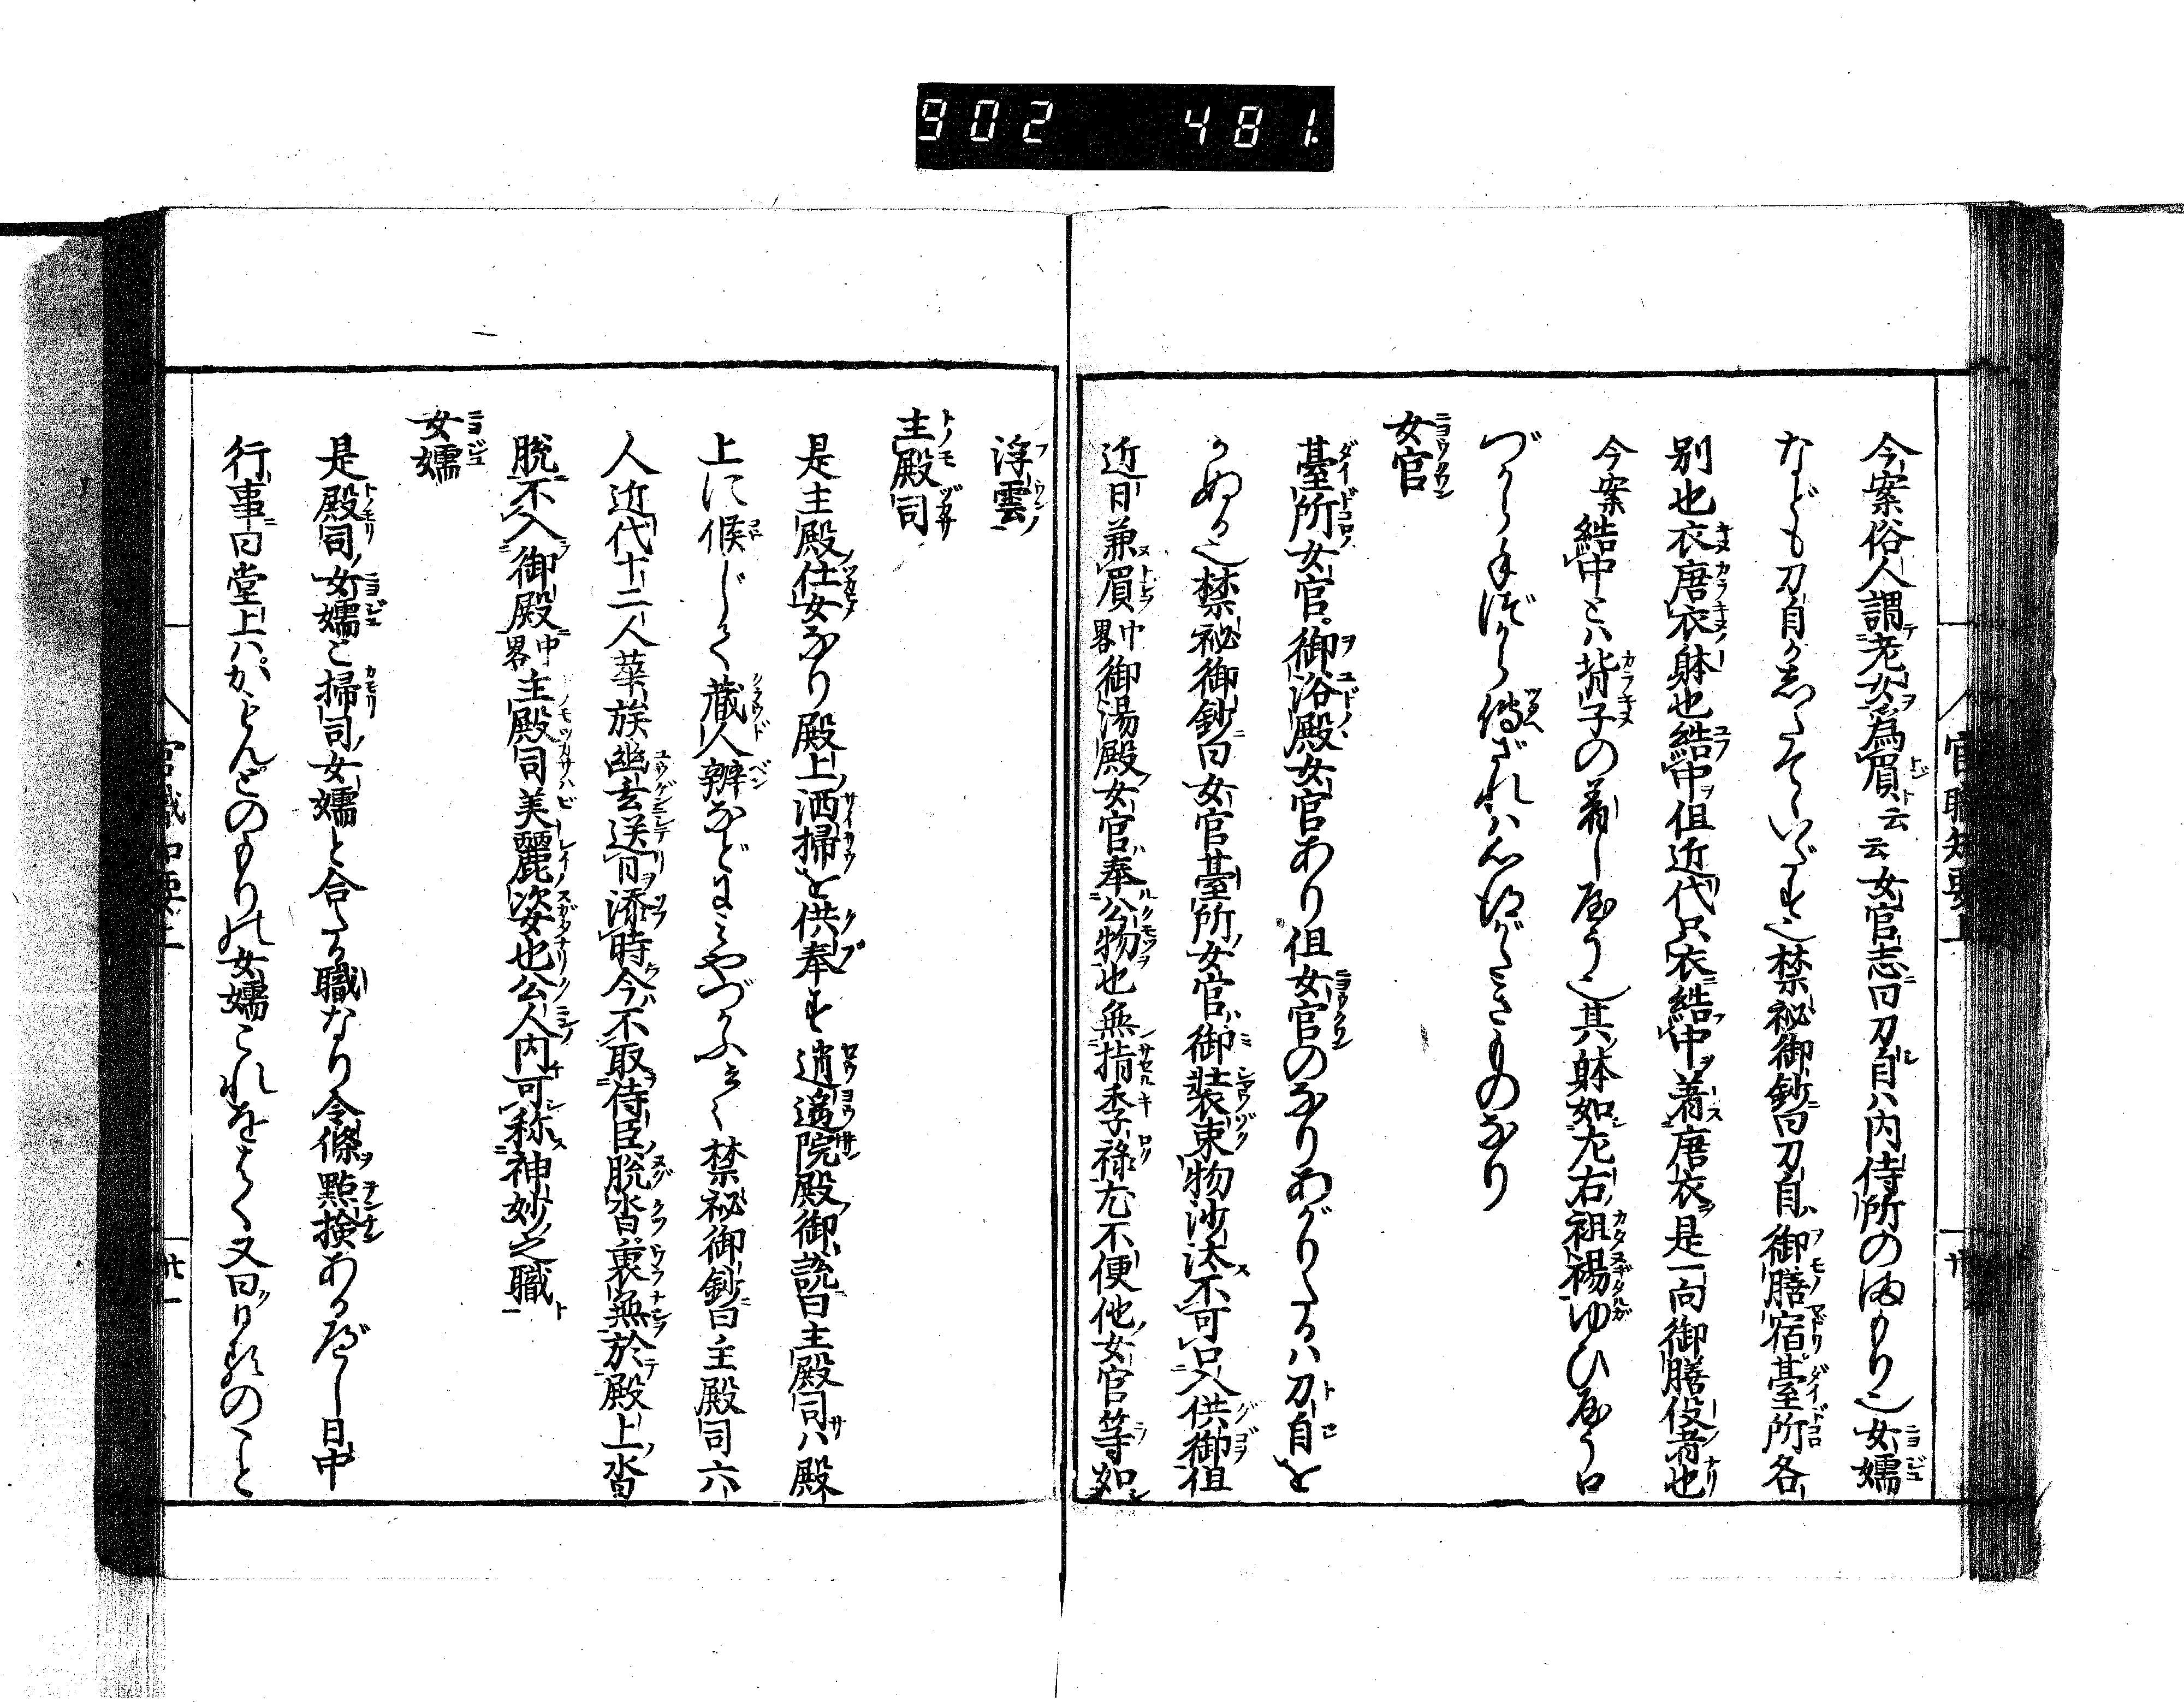 902 481.
今案俗人謂老女為負云云女官志曰刀自ハ内侍所のまもり也女孺
なども刀自がしたてゝいだす也禁秘御鈔曰刀自御膳宿臺所各
別也衣唐衣躰也結中但近代只衣結中着唐衣是一向御膳役者也
今案結中とハ背子の着しやう也其躰如左右袒裼ゆひやう口
づから手づから傳ざれハ心得がたきものなり
女官
臺所女官御浴殿女官あり但女官のなりあがりたるハ刀自を
かぬる也禁秘御鈔曰女官臺所女官御装束物沙汰不可口入供御但
近日兼負中畧御湯殿女官奉公物也無指季禄尤不便他女官等如
官職知要上
浮雲
主殿司
是主殿仕女なり殿上洒掃を供奉す逍遥院殿御説曰主殿司ハ殿
上に候じて蔵人辨などにみやづかふべく禁秘御鈔曰主殿司六
人近代十二人華族幽玄送日添時今不取侍臣脱沓裏無於殿上沓
脱不入御殿中畧主殿司美麗姿也公人内可称神妙之職
女孺
是殿司女孺と掃司女孺と合たる職なり令條點検あるべし日中
行事曰堂上ハかもんとのもりの女孺これをはく又曰のこと
廿一